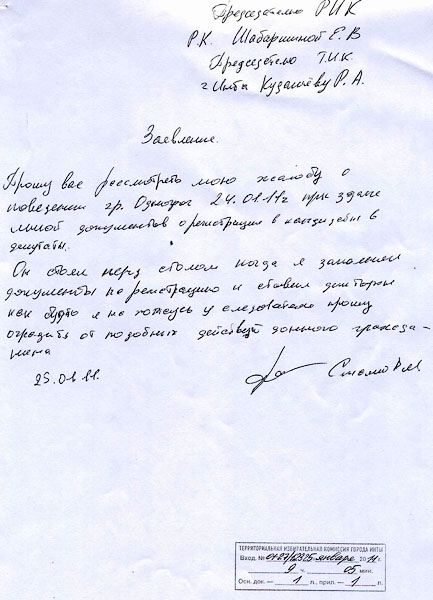 Председателю РИК
Р.К. Шабаршиной Е.В
Председателю Т.И.К.
г Инты Кузашёву Р. А.
Заявление.
Прошу вас рассмотреть мою жалобу о
поведении гр. 24.01.11г при сдаче
мной документов о регистрации в кандидаты в
депутаты.
Он стоял перед столом когда я заполнял
документы на регистрацию и ставил
как будто я нахожусь у следователя прошу
оградить от подобных действий данного гражда-
нина
25.01.11.
ТЕРРИТОРИАЛЬНАЯ ИЗБИРАТЕЛЬНАЯ КОМИССИЯ ГОРОДА ИНТЫ
Вход. № 25 января 2011г.
9 ч. 05 мин.
Осн. док. — 1 л., прил. — 1 л.